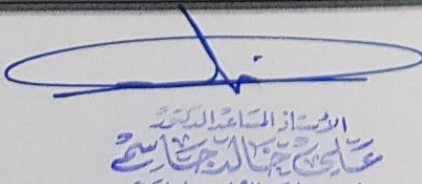 الأستاذ المساعد الدكتور
علي خالد جاسم